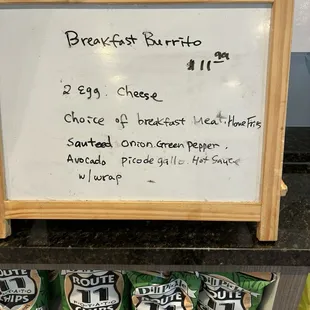 Breakfast Burrito
$11.99
2 Egg. Cheese
Choice of breakfast Meat. Home Fries
Sauteed onion. Green Pepper.
Avocado pico de gallo. Hot Sauce
w/wrap
ROUTE
11
POTATO
CHIPS
ROUTE
11
POTATO
CHIPS
Dill Pickle
ROUTE
11